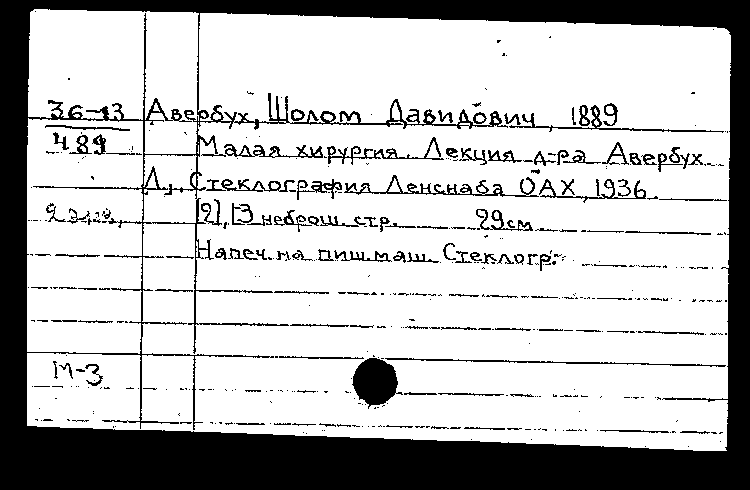 36-13 Авербух, Шолом Давидович, 1889
489 Малая хирургия. Лекция д-ра Авербух.
Л., Стеклография Ленснаба ОАХ, 1936.
[2], 13 неброш. стр. 29 см.
Напеч. на пиш. маш. Стеклогр.
М-3